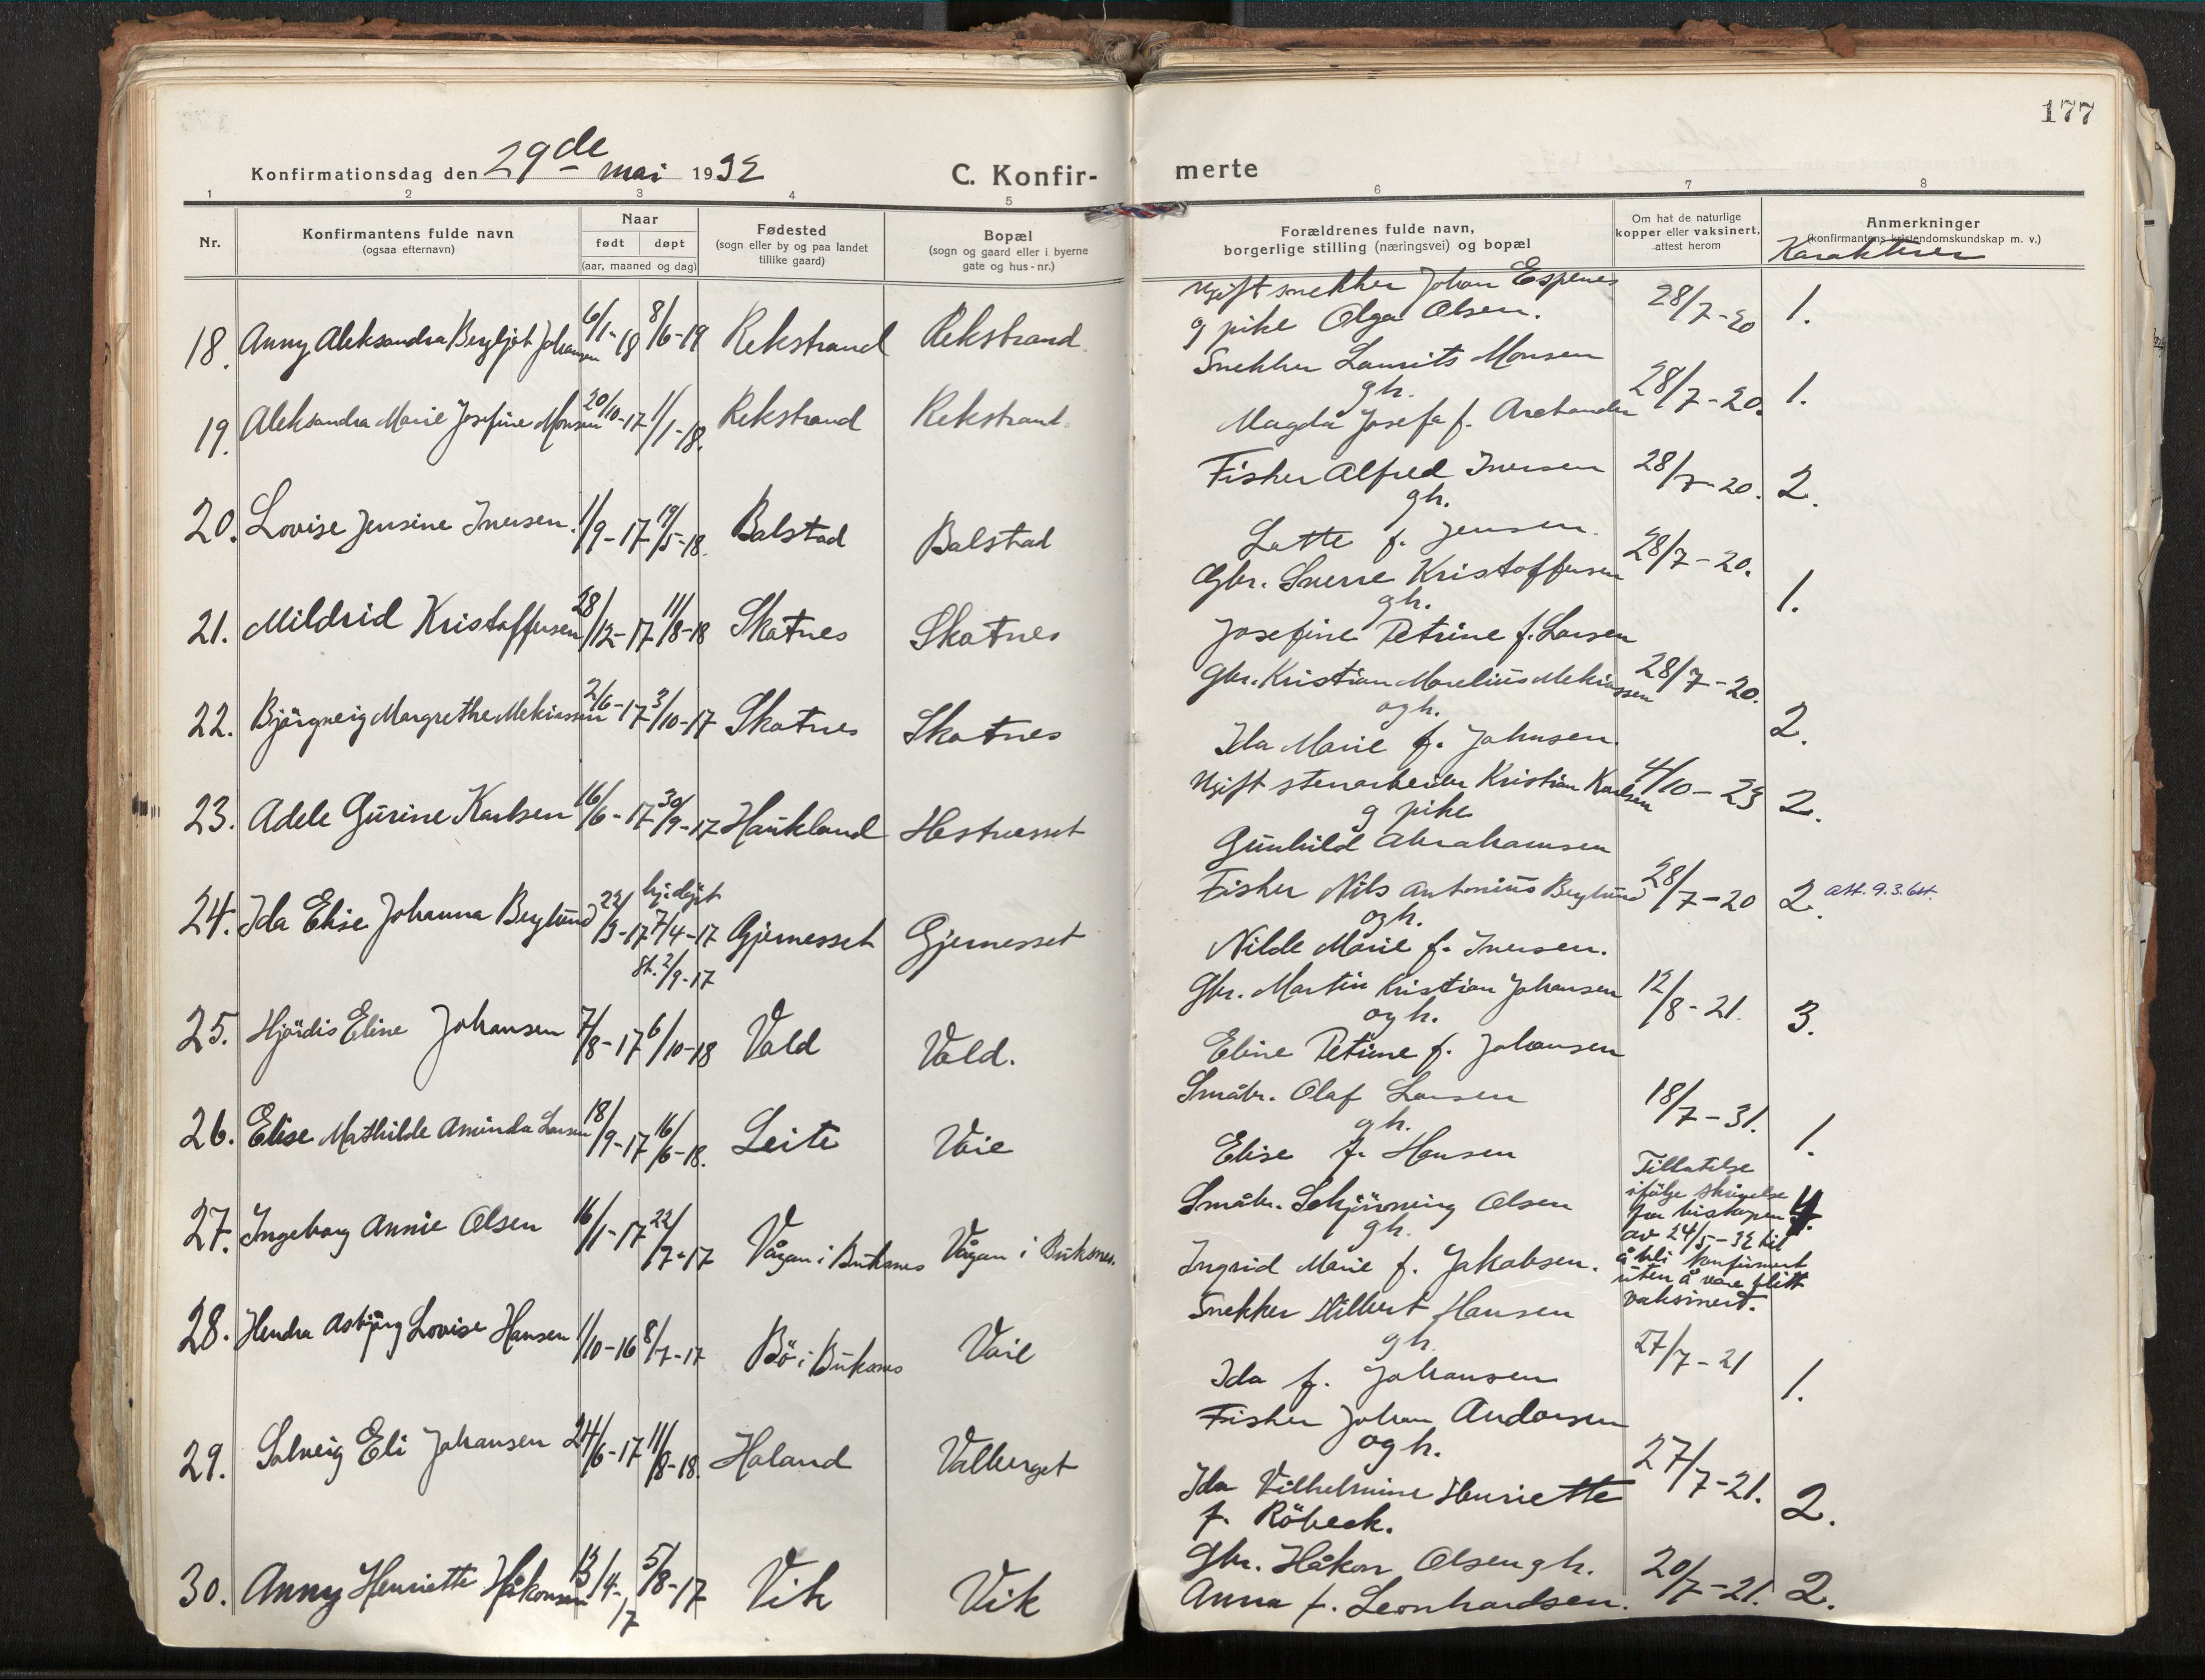 177
Konfirmationsdag den 29de mai 1932
C. Konfir-
merte
1 2 3 4 5 6 7 8
Nr.
Konfirmantens fulde navn
(ogsaa efternavn)
Naar
født døpt
(aar, maaned og dag)
Fødested
(sogn eller by og paa landet
tillike gaard)
Bopæl
(sogn og gaard eller i byerne
gate og hus-nr.)
Forældrenes fulde navn,
borgerlige stilling (næringsvei) og bopæl
Om hat de naturlige
kopper eller vaksinert,
attest herom
Anmerkninger
(konfirmantens kristendomskundskap m. v.)
Karakterer
18. Anny Aleksandra Bergljot Johansen 6/1-18 8/6-19 Rekstrand Rekstrand.
Ugift snekker Johan Espenes
g pike Olga Olsen.
28/7-20 1.
19. Aleksandra Marie Josefine Monsen 20/10-17 1/1-18. Rekstrand Rekstrand.
Snekker Laurits Monsen
gh.
Magda Josefa f.
28/7-20. 1.
20. Lovise Jensine Iversen. 1/9-17 19/5-18. Balstad Balstad
Fisker Alfred Iversen
gh.
Lotte f. Jensen.
28/7-20. 2.
21. Mildrid Kristoffersen 28/12-17 11/8-18 Skotnes Skotnes
Gbr. Sverre Kristoffersen
gh.
Josefine Petrine f. Larsen
28/7-20. 1.
22. Bjørgveig Margrethe Mekiassen 2/6-17 3/10-17 Skotnes Skotnes
Gbr. Kristian Marelius Mekiassen
ogh.
Ida Marie f. Johnsen.
28/7-20. 2.
23. Adele Gurine Karlsen 16/6-17 30/9-17 Haukland Hestnesset
Ugift stenarbeider Kristian Karlsen
g pike
Gunhild Abrahamsen
4/10-23 2.
24. Ida Elise Johanna Berglund 22/3-17 hj.døpt 7/4-17 st. 2/9-17 Gjernesset Gjernesset
Fisker Nils Antonius Berglund
ogh.
Nilde Marie f. Iversen.
28/7-20 2. att. 9.3.64.
25. Hjördis Eline Johansen 7/8-17 6/10-18 Vold Vold.
Gbr. Martin Kristian Johansen
ogh.
Eline Petrine f. Johansen
12/8-21. 3.
26. Elise Mathilde Aminda Larsen 18/9-17 16/6-18. Leite Vaie
Småbr. Olaf Larsen
gh.
Elise f. Hansen
18/7-31. 1.
27. Ingeborg Annie Olsen 16/1-17 22/7-17 Vågan i Buksnes Vågan i Buksnes.
Småbr. Schjönning Olsen
gh.
Ingrid Marie f. Jakobsen.
Tillatelse
ifølge skrivelse
fra biskopen
av 24/5-32 til
å bli konfirmert
uten å være blitt
vaksinert.
4.
28. Hendra Asbjørg Lovise Hansen 1/10-16 8/7-17 Bö i Buksnes Vaie
Snekker Hilbert Hansen
gh.
Ida f. Johansen
27/7-21 1.
29. Solveig Eli Johansen 24/6-17 11/8-18. Holand Valberget
Fisker Johan Andorsen
ogh.
Ida Vilhelmine Henriette
f. Röbeck.
27/7-21. 2.
30. Anny Henriette Håkonsen 13/4-17 5/8-17 Vik Vik
Gbr. Håkon Olsen gh.
Anna f. Leonhardsen.
20/7-21. 2.